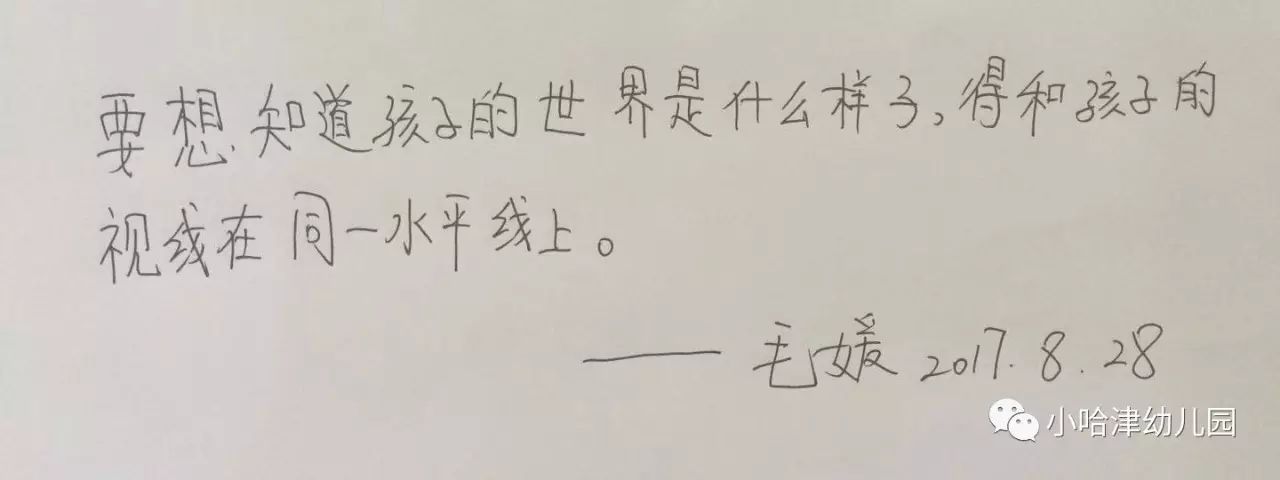 要想知道孩子的世界是什么样子,得和孩子的
视线在同一水平线上。
——毛媛 2017.8.28
小哈津幼儿园